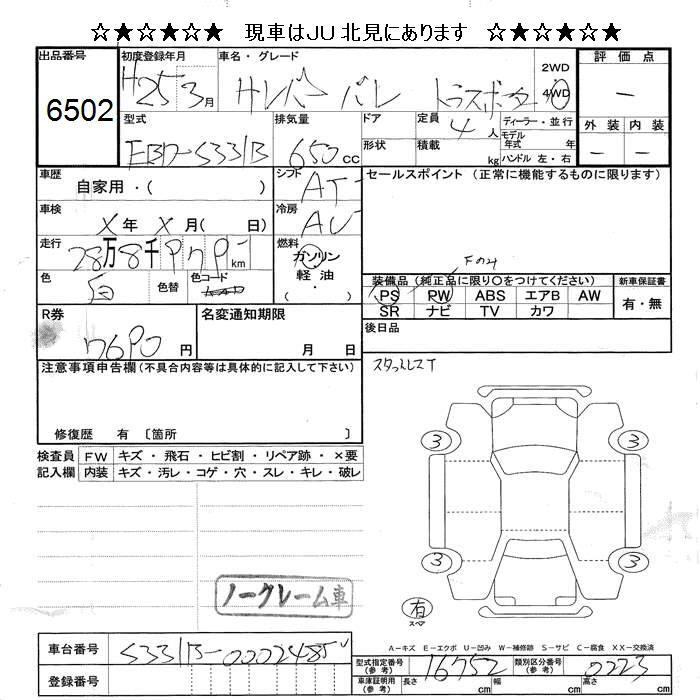 ☆★☆★☆★ 現車はJU北見にあります ☆★☆★☆★
出品番号 初度登録年月 車名・グレード 2WD 4WD 評価点
6502 H25 3月 サンバー バン トランスポーター －
型式 排気量 ドア 定員 4人 ディーラー・並行 外装 内装
EBD-S331B 650cc 形状 積載 kg モデル年式 年 ハンドル 左・右 － －
車歴 自家用・( ) シフト AT セールスポイント (正常に機能するものに限ります)
車検 X年 X月( 日) 冷房 AC
走行 28万8千979 km 燃料 ガソリン 軽油
Fのみ
色 白 色替 色コード ・
装備品 (純正品に限り○をつけてください) 新車保証書
PS PW ABS エアB AW 有・無
SR ナビ TV カワ
R券 7690円 名変通知期限 月 日
後日品
注意事項申告欄(不具合内容等は具体的に記入して下さい)
スタットレスT
修復歴 有 〔箇所 〕
検査員 FW キズ・飛石・ヒビ割・リペア跡・×要
記入欄 内装 キズ・汚レ・コゲ・穴・スレ・キレ・破レ
3 3
3 3
ノークレーム車
有
スペア
A－キズ E－エクボ U－凹み W－補修跡 S－サビ C－腐食 XX－交換済
車台番号 S331B-0002485
型式指定番号(参考) 16752 類別区分番号(参考) 0223
登録番号
車庫証明用(参考) 長さ cm 幅 cm 高さ cm